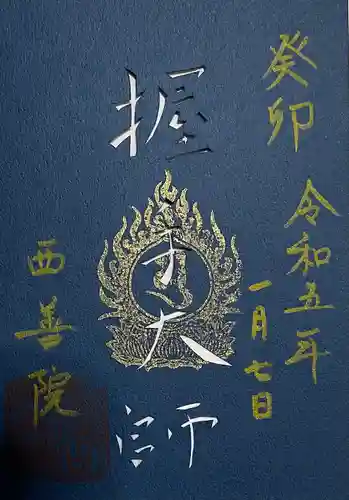 癸卯 令和五年
一月七日
握
大師
西善院